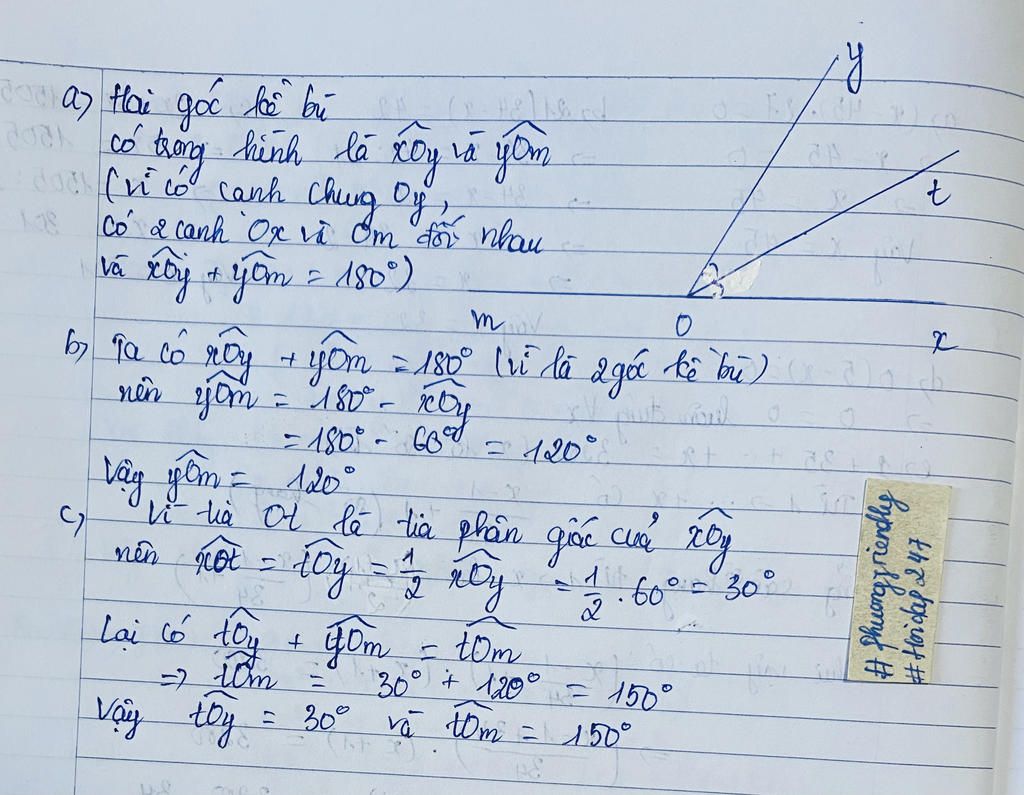 a) Hai góc kề bù
có trong hình là xOy và yOm
(vì có cạnh chung Oy,
có 2 cạnh Ox và Om đối nhau
và xOy + yOm = 180°)
y
t
m
O
x
b) Ta có xOy + yOm = 180° (vì là 2 góc kề bù)
nên yOm = 180° - xOy
= 180° - 60° = 120°
Vậy yOm = 120°
c) Vì tia Ot là tia phân giác của xOy
nên xOt = tOy = 1/2 xOy = 1/2 . 60° = 30°
Lại có tOy + yOm = tOm
=> tOm = 30° + 120° = 150°
Vậy tOy = 30° và tOm = 150°
#Hoidap247